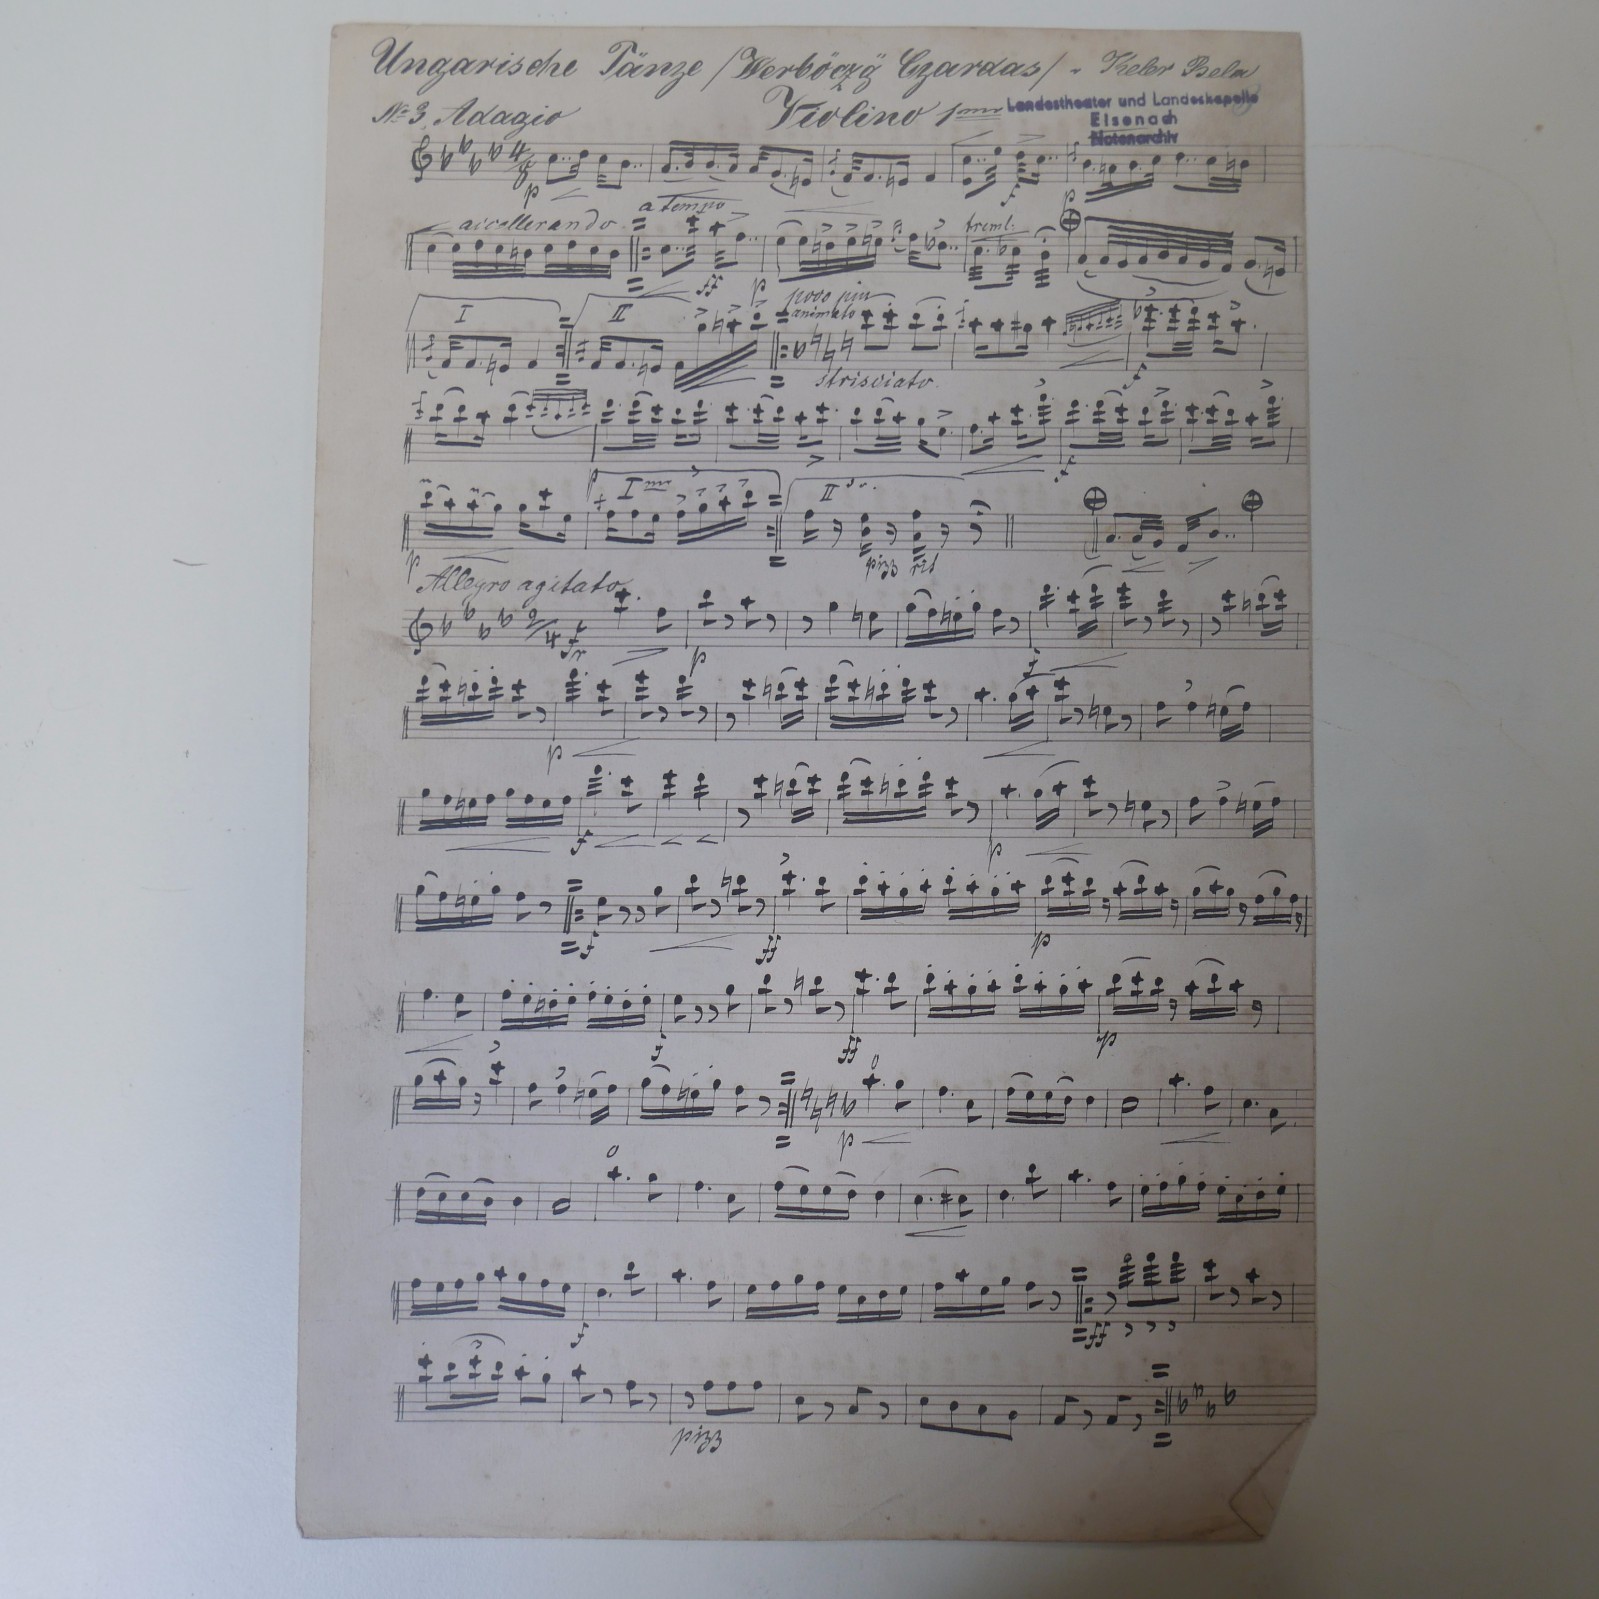 Ungarische Tänze /Werböczÿ Czardas/ - Keler Bela
№ 3. Adagio Violino 1mo
Landestheater und Landeskapelle
Eisenach
Notenarchiv
4/8
p f p
accellerando a tempo treml.
ff p
I II poco piu
animato
strisciato.
f
f
p Imo II do.
p pizz
Allegro agitato
2/4 fr
p f
p
f p
f ff p
f ff p
p
f ff
pizz